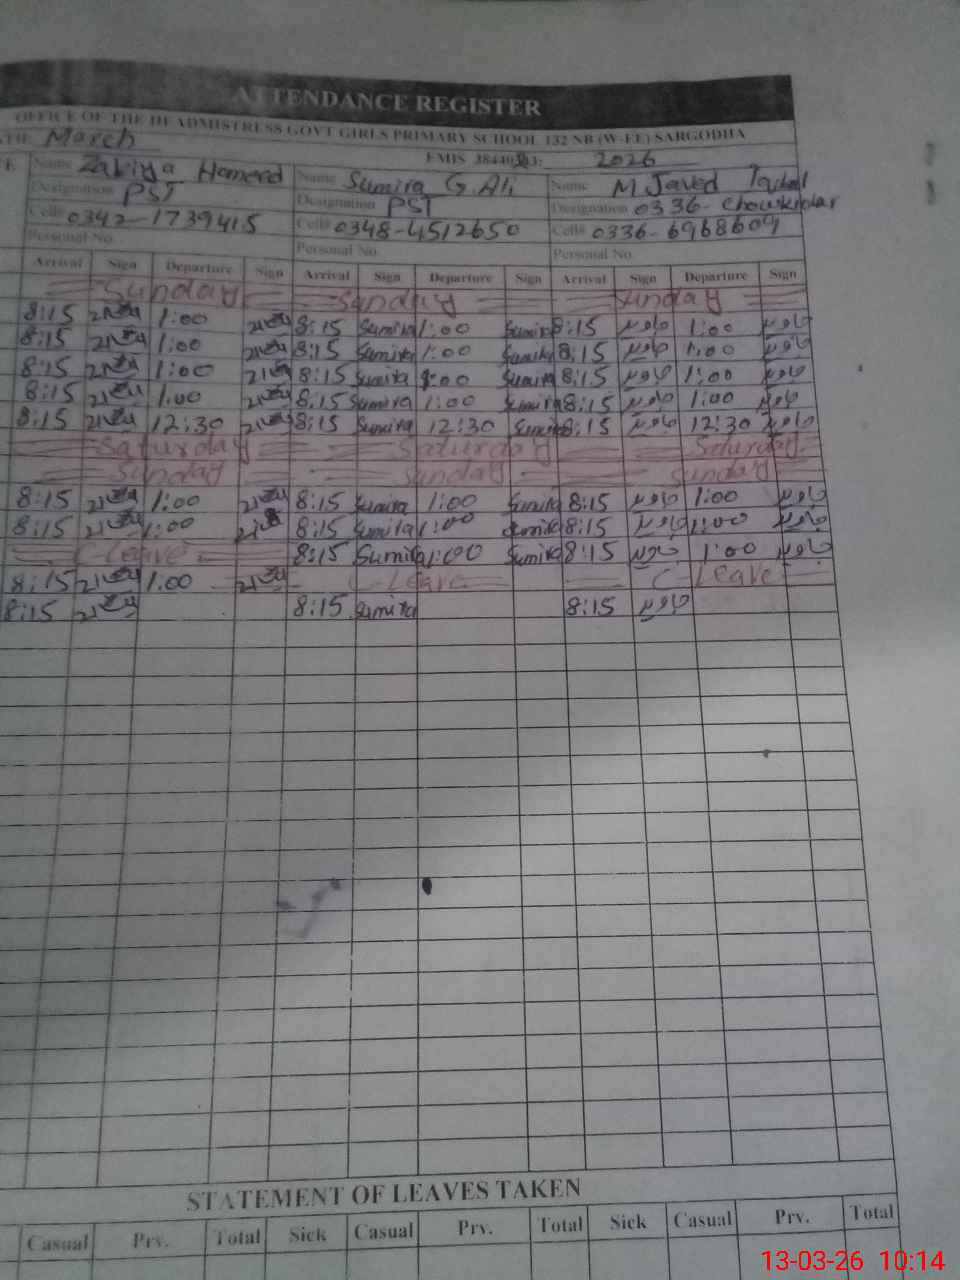 ATTENDANCE REGISTER
OFFICE OF THE HEADMISTRESS GOVT GIRLS PRIMARY SCHOOL 132 NB (W-EE) SARGODHA
March EMIS 2026
Name Zakiya Hameed Name Sumira G.Ali Name M Javed Iqbal
Designation PST Designation PST Designation 0336- chowkidar
Cell# 0342-1739415 Cell# 0348-4512650 Cell# 0336-6968609
Personal No. Personal No. Personal No.
Arrival Sign Departure Sign Arrival Sign Departure Sign Arrival Sign Departure Sign
Sunday Sunday Sunday
8:15 1:00 8:15 Sumira 1:00 Sumira 8:15 جاوید 1:00 جاوید
8:15 1:00 8:15 Sumira 1:00 Sumira 8:15 جاوید 1:00 جاوید
8:15 1:00 8:15 Sumira 1:00 Sumira 8:15 جاوید 1:00 جاوید
8:15 1:00 8:15 Sumira 1:00 Sumira 8:15 جاوید 1:00 جاوید
8:15 12:30 8:15 Sumira 12:30 Sumira 8:15 جاوید 12:30 جاوید
Saturday Saturday Saturday
Sunday Sunday Sunday
8:15 1:00 8:15 Sumira 1:00 Sumira 8:15 جاوید 1:00 جاوید
8:15 1:00 8:15 Sumira 1:00 Sumira 8:15 جاوید 1:00 جاوید
C-leave 8:15 Sumira 1:00 Sumira 8:15 جاوید 1:00 جاوید
8:15 1:00 C-Leave C-Leave
8:15 8:15 Sumira 8:15 جاوید
STATEMENT OF LEAVES TAKEN
Casual Prv. Total Sick Casual Prv. Total Sick Casual Prv. Total
13-03-26 10:14